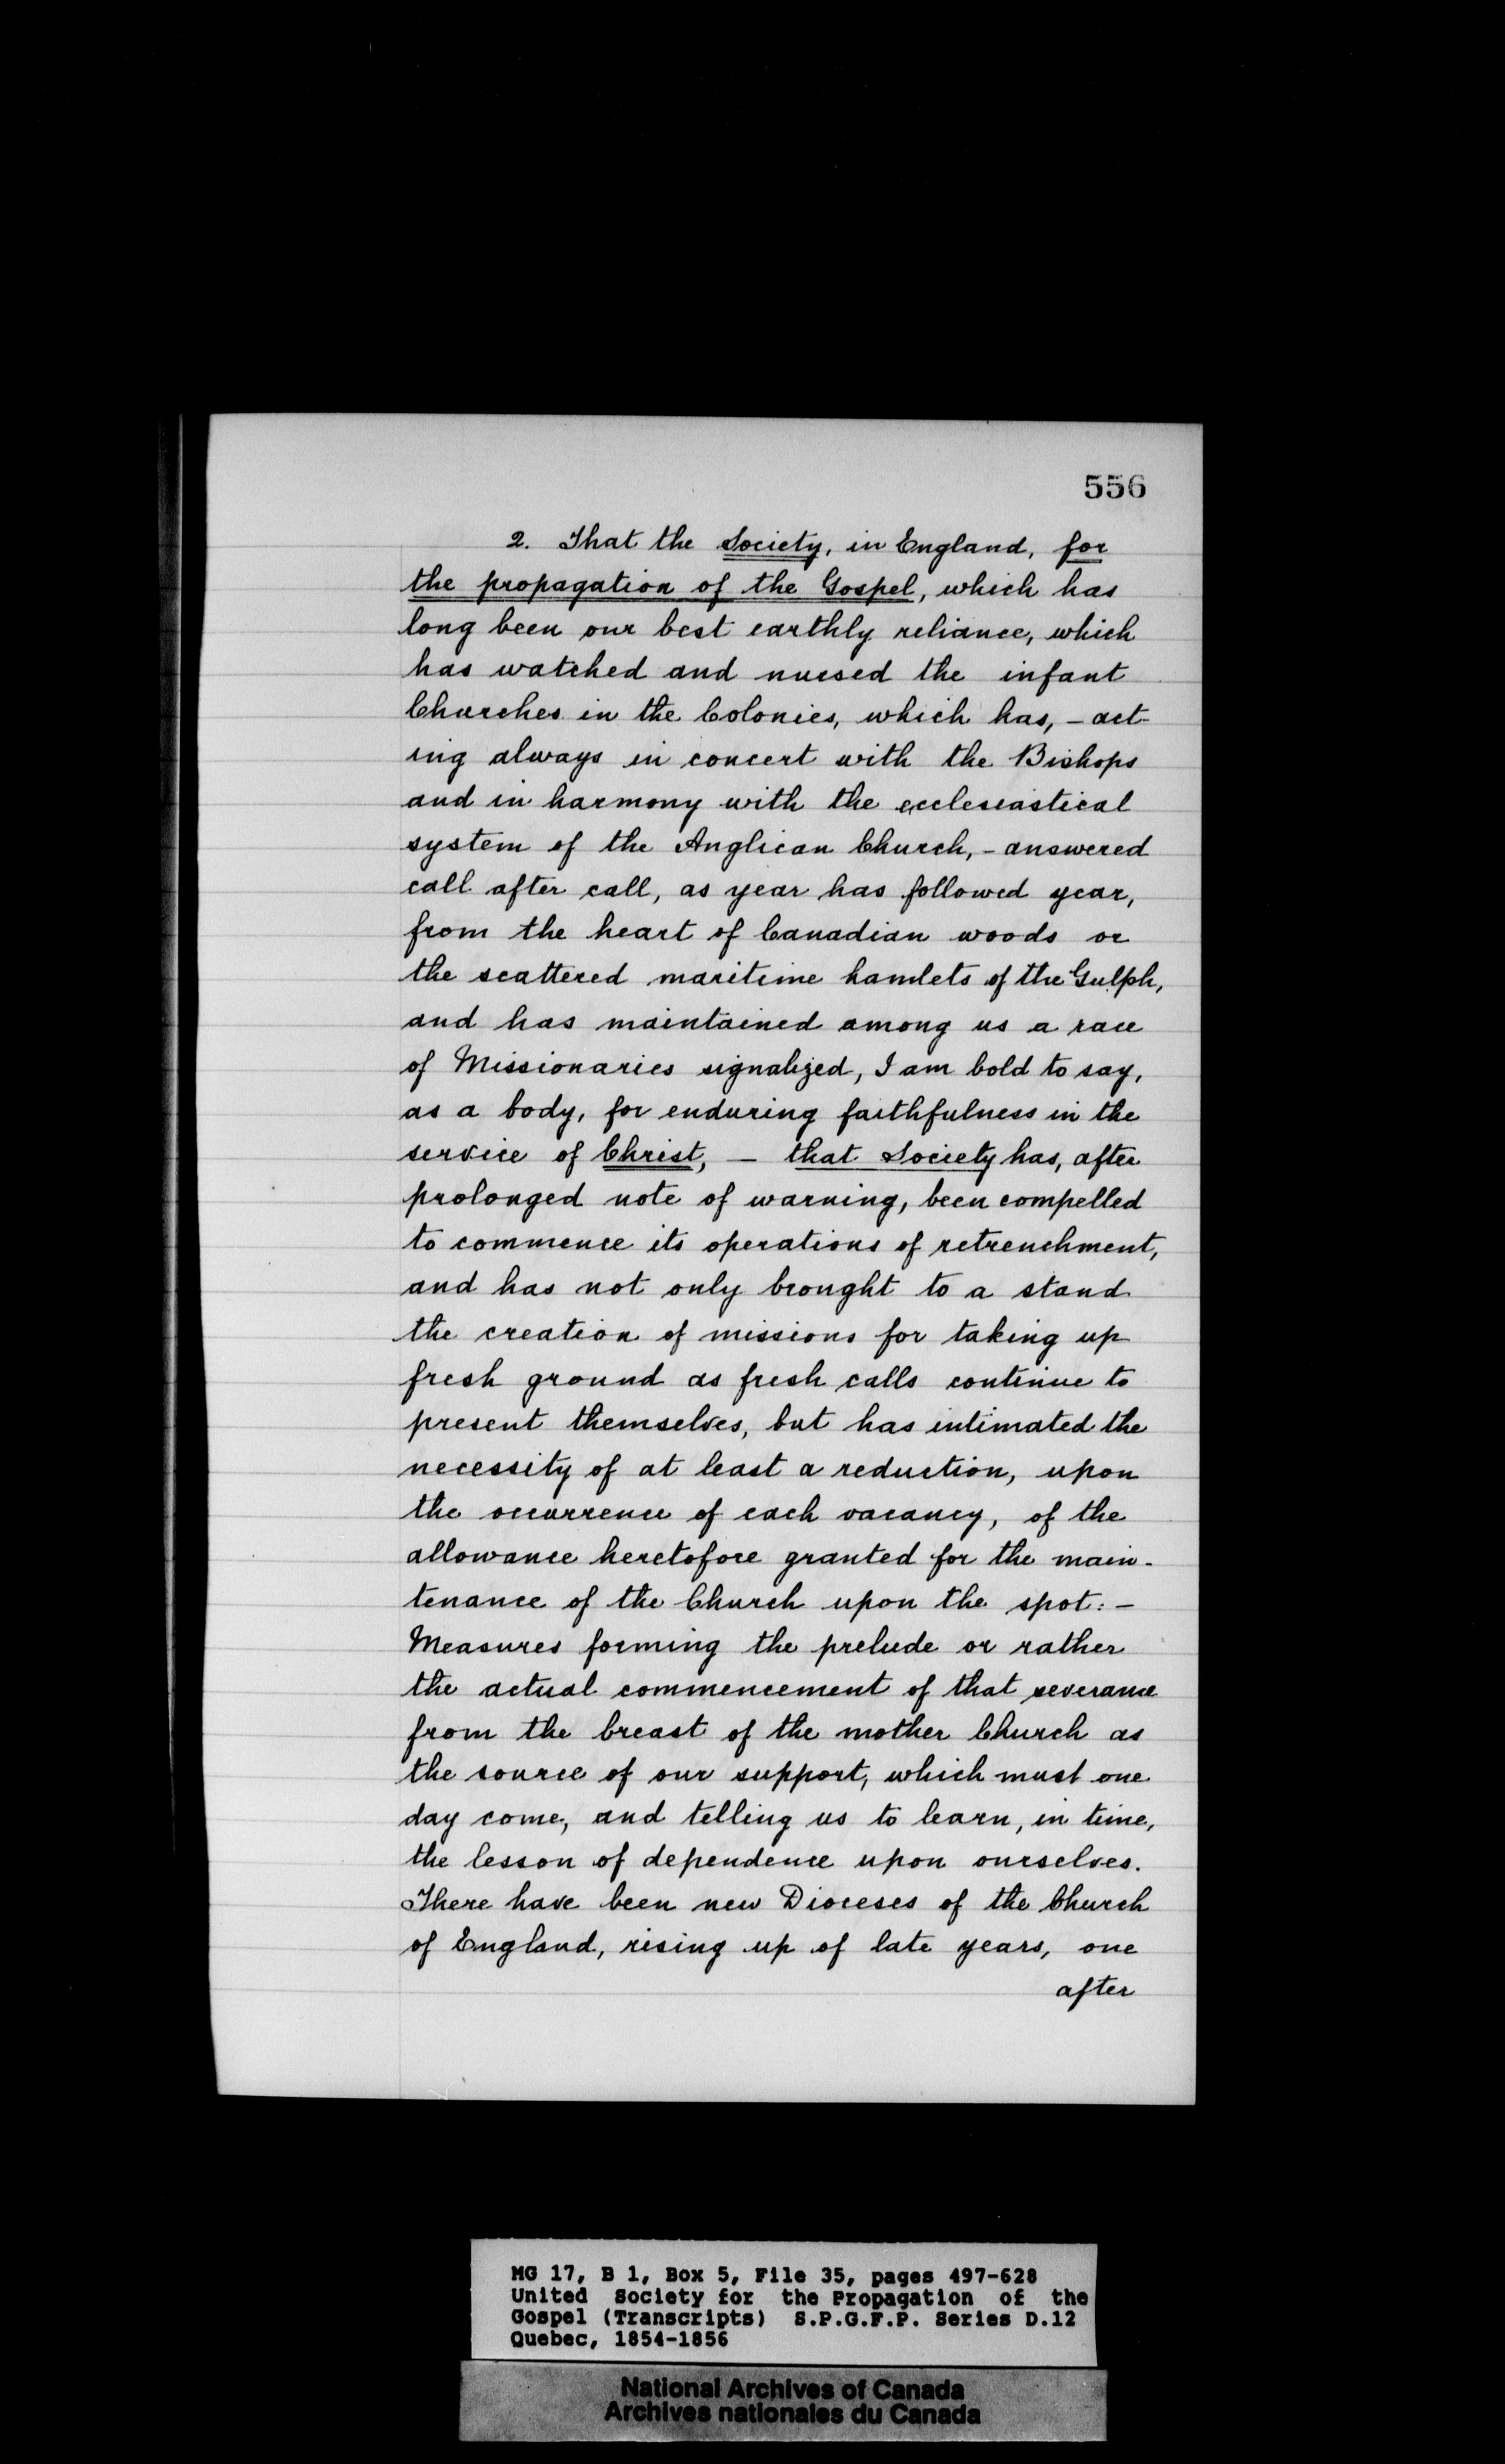 556
2. That the Society, in England, for
the propagation of the Gospel, which has
long been our best earthly reliance, which
has watched and nursed the infant
Churches in the Colonies, which has, - act-
ing always in concert with the Bishops
and in harmony with the ecclesiastical
system of the Anglican Church, - answered
call after call, as year has followed year,
from the heart of Canadian woods or
the scattered maritime hamlets of the Gulph,
and has maintained among us a race
of Missionaries signalized, I am bold to say,
as a body, for enduring faithfulness in the
service of Christ, — that Society has, after
prolonged note of warning, been compelled
to commence its operations of retrenchment,
and has not only brought to a stand
the creation of missions for taking up
fresh ground as fresh calls continue to
present themselves, but has intimated the
necessity of at least a reduction, upon
the occurrence of each vacancy, of the
allowance heretofore granted for the main-
tenance of the Church upon the spot: —
Measures forming the prelude or rather
the actual commencement of that severance
from the breast of the mother Church as
the source of our support, which must one
day come, and telling us to learn, in time,
the lesson of dependence upon ourselves.
There have been new Dioceses of the Church
of England, rising up of late years, one
after
MG 17, B 1, Box 5, File 35, pages 497-628
United Society for the Propagation of the
Gospel (Transcripts) S.P.G.F.P. Series D.12
Quebec, 1854-1856
National Archives of Canada
Archives nationales du Canada